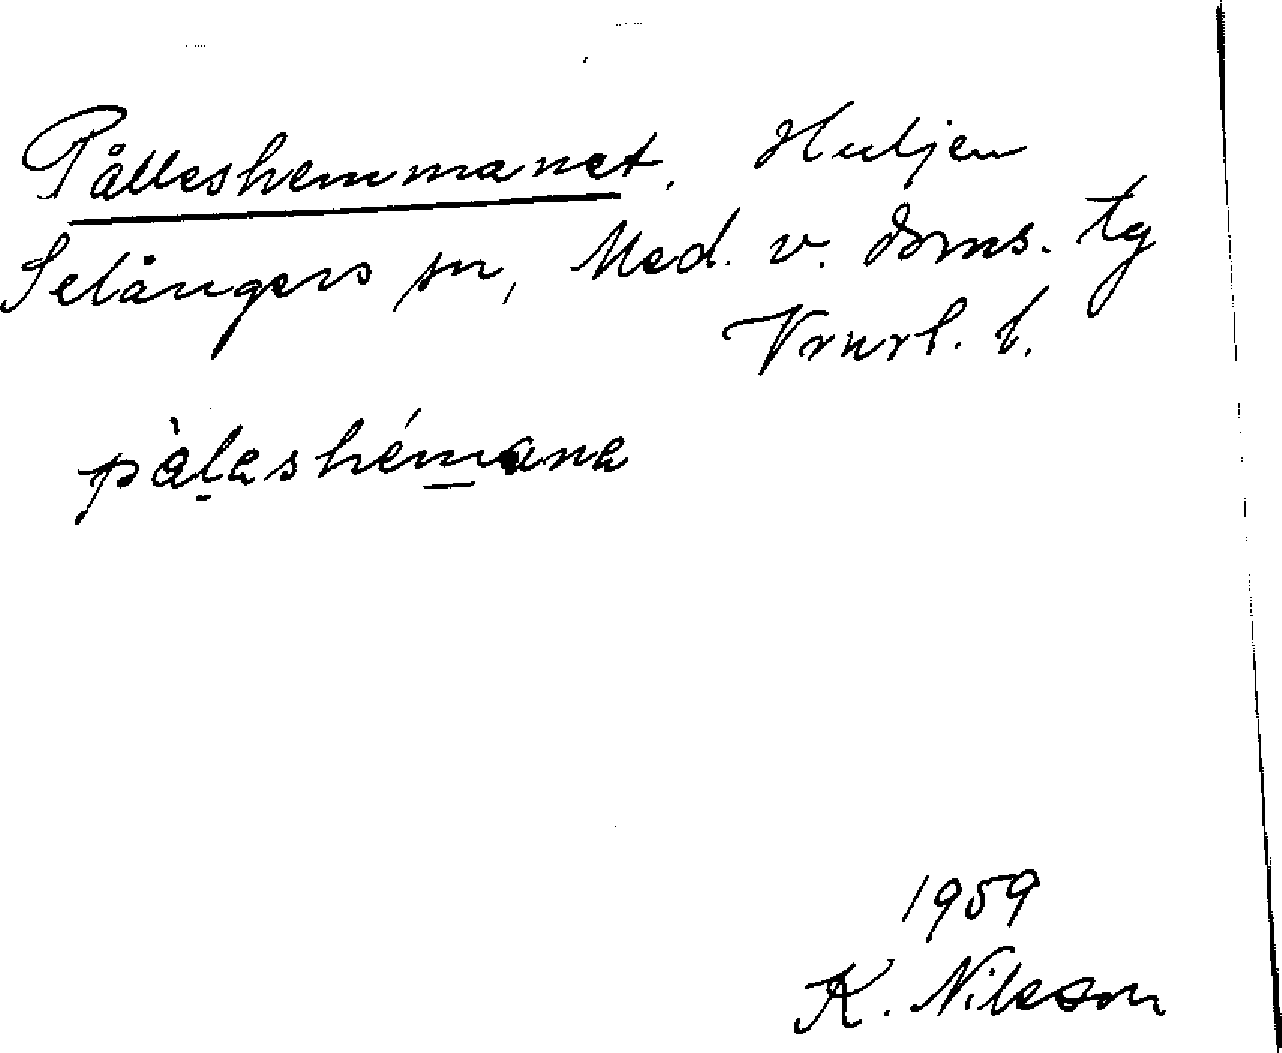 Pålleshemmanet. Huljen
Selångers sn, Med. v. doms. tg
Vrnrl. b.
pàlashémana
1959
K. Nilsson